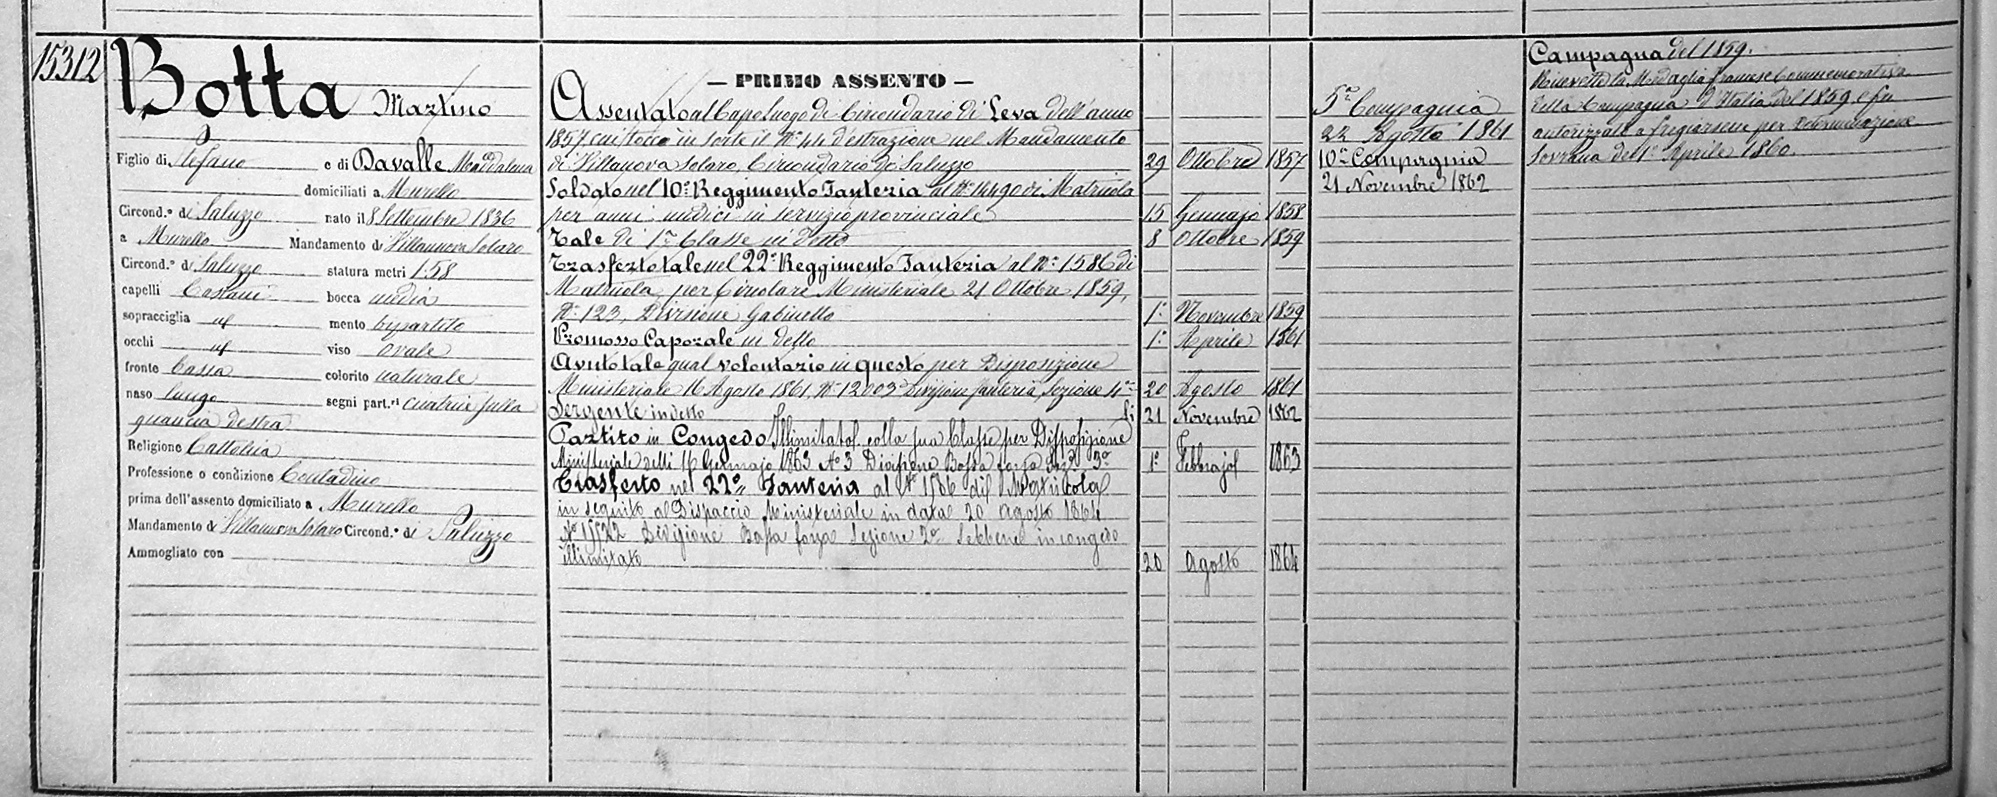 15312
Botta Martino
Figlio di Stefano e di Davalle Maddalena
domiciliati a Murello
Circond.º di Saluzzo nato il 8 Settembre 1836
a Murello Mandamento di Villanova Solaro
Circond.º di Saluzzo statura metri 1:58
capelli Castani bocca media
sopracciglia id bipartito mento
occhi id viso ovale
fronte bassa colorito naturale
naso lungo segni part.ri cicatrice sulla
guancia destra
Religione Cattolica
Professione o condizione Contadino
prima dell'assento domiciliato a Murello
Mandamento di Villanova Solaro Circond.º di Saluzzo
Ammogliato con
— PRIMO ASSENTO —
Assentato al Capo luogo di Circondario di Leva dell'anno
1857 cui toccò in sorte il Nº 44 d'estrazione nel Mandamento
di Villanova Solaro, Circondario di Saluzzo 29 Ottobre 1857
Soldato nel 10º Reggimento Fanteria al Nº 16490 di Matricola
per anni undici in servizio provinciale 15 Gennajo 1858
Tale di 1ª Classe in detto 8 Ottobre 1859
Trasferto tale nel 22º Reggimento Fanteria al Nº 1586 di
Matricola per Circolare Ministeriale 21 Ottobre 1859,
Nº 123, Divisione Gabinetto 1º Novembre 1859
Promosso Caporale in detto 1º Aprile 1861
Avuto tale qual volontario in questo per Disposizione
Ministeriale 16 Agosto 1861, Nº 12003 Divisione fanteria, Sezione 4ª 20 Agosto 1861
Sergente in detto li 21 Novembre 1862
Partito in Congedo Illimitato colla sua Classe per Disposizione
Ministeriale delli 16 Gennajo 1863 Nº 3 Divisione Bassa forza Sez. 3ª 1º Febbrajo 1863
Trasferto nel 22º Fanteria al Nº 1586 di Matricola
in seguito al Dispaccio Ministeriale in data 20 agosto 1864
Nº 15522 Divisione Bassa forza Sezione 2ª Sebbene in congedo
illimitato 20 Agosto 1864
5ª Compagnia
22 Agosto 1861
10ª Compagnia
21 Novembre 1862
Campagna del 1859.
Ricevette la Medaglia francese Commemorativa
della Campagna d'Italia del 1859 e fu
autorizzato a fregiarsene per Determinazione
Sovrana del 1º Aprile 1860.